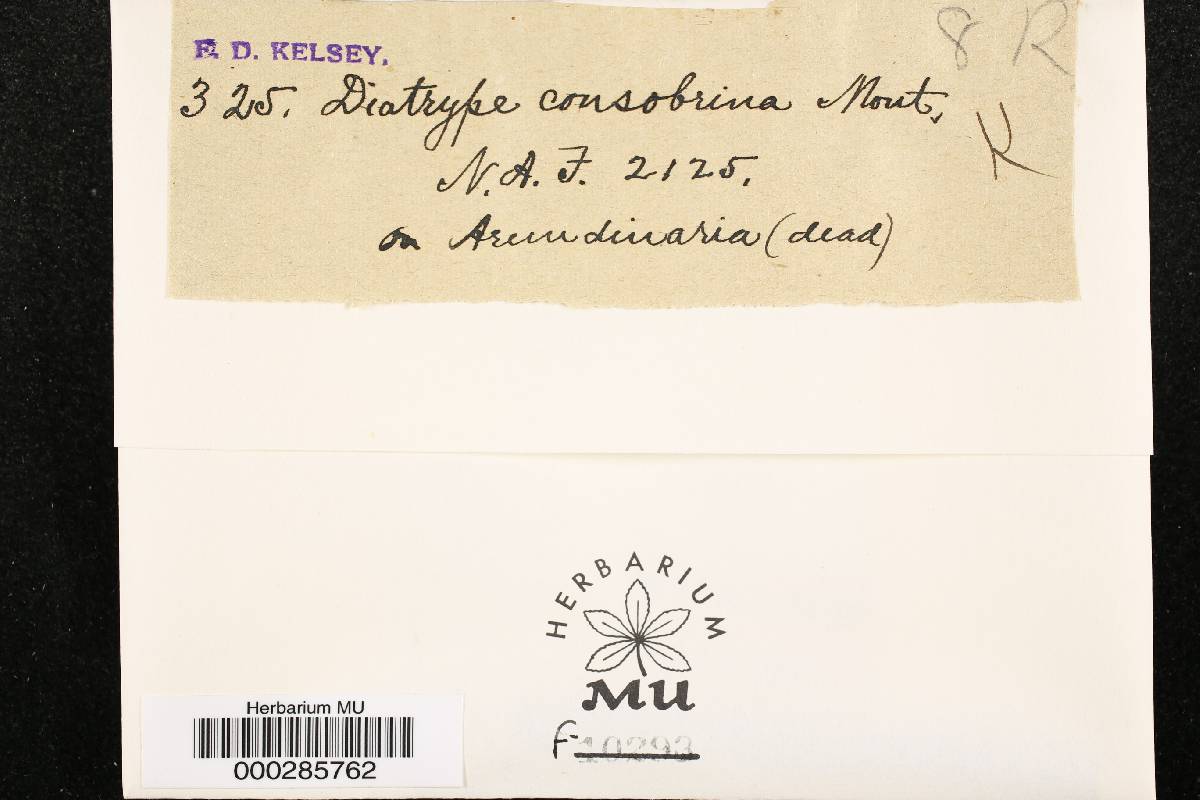 8 R
F. D. KELSEY.
325. Diatrype consobrina Mont.
K
N. A. F. 2125.
on Arundinaria (dead)
HERBARIUM
MU
F-10293
Herbarium MU
000285762